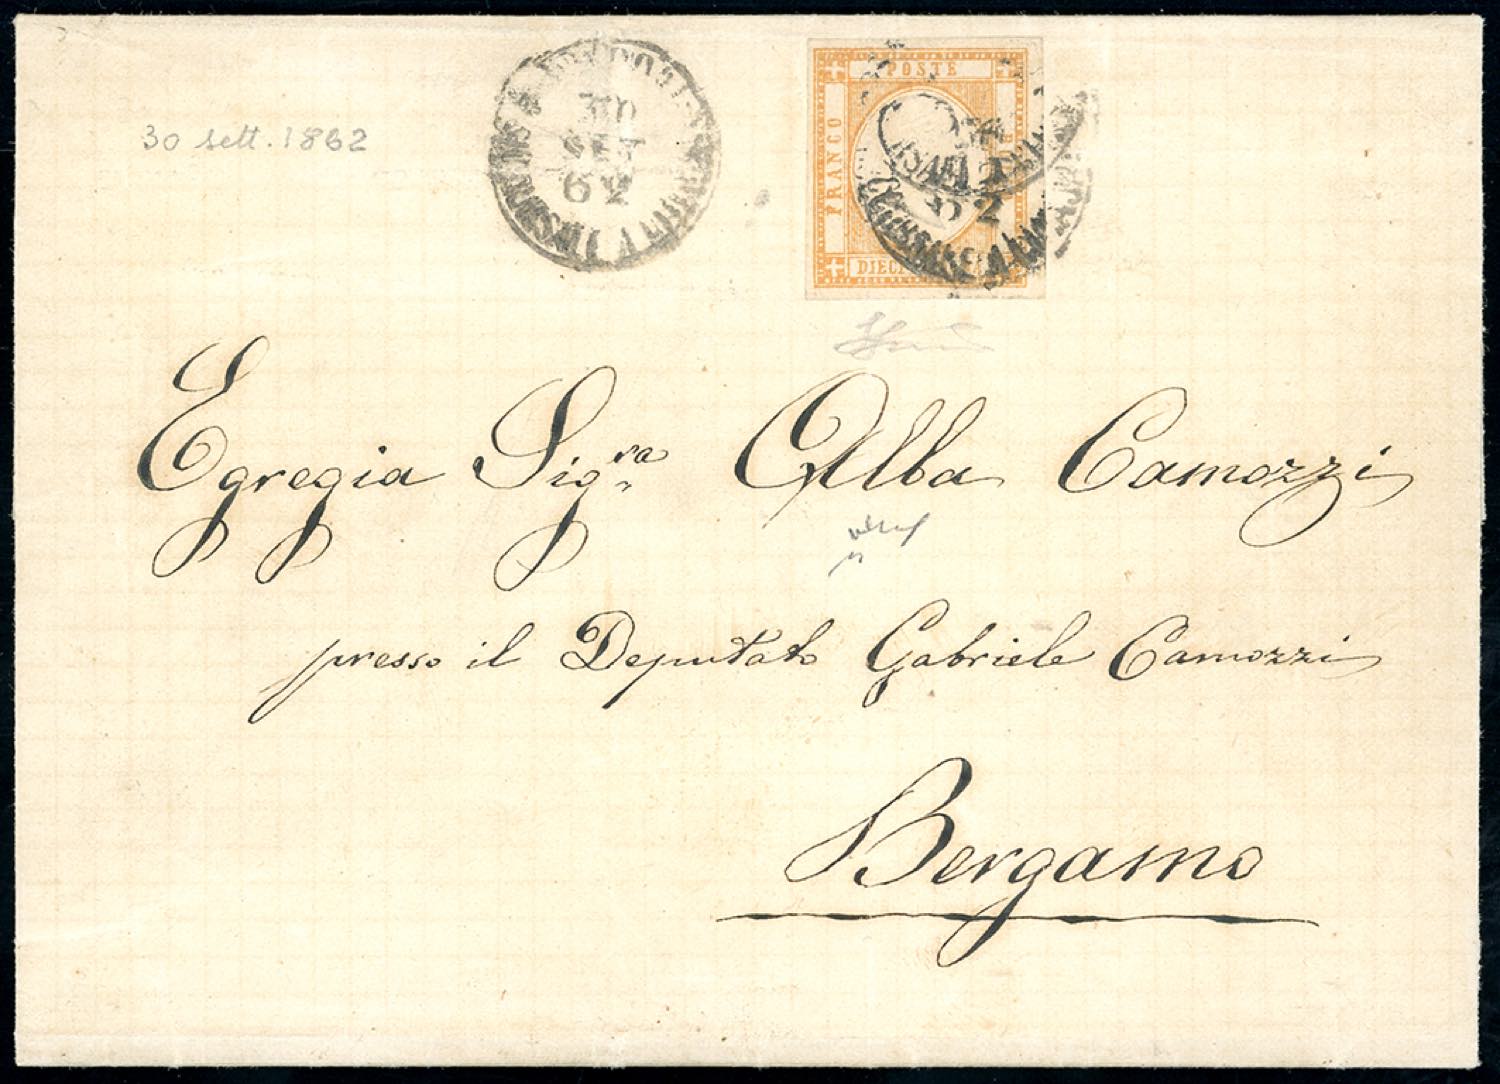 30 sett. 1862
30
SET
62
POSTE
FRANCO
DIECI
62
Egregia Sig.ra Alba Camozzi
presso il Deputato Gabriele Camozzi
Bergamo